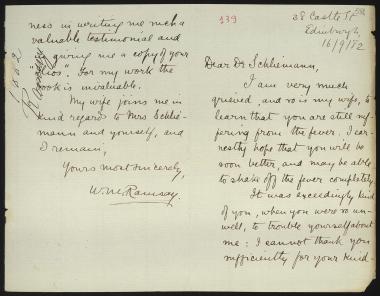 139
38 Castle St
Edinburgh,
16/9/82
Dear Dr Schliemann,
I am very much
grieved, and so is my wife, to
learn that you are still suf-
fering from the fever. I ear-
nestly hope that you will be
soon better, and may be able
to shake off the fever completely.
It was exceedingly kind
of you, when you were so un-
well, to trouble yourself about
me: I cannot thank you
sufficiently for your kind-
ness in writing me such a
valuable testimonial and
giving me a copy of your
Ilios. For my work the
book is invaluable.
My wife joins me in
kind regards to Mrs Schlie-
mann and yourself, and
I remain,
Yours most sincerely,
W. M. Ramsay.
Ramsay
1882